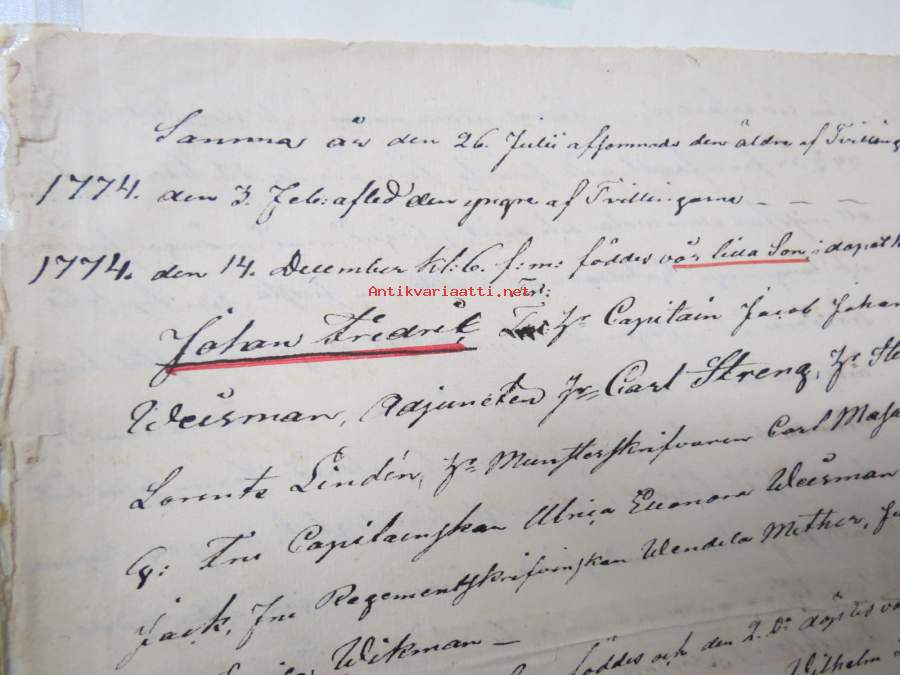 Samma år den 26. Julii afsomnade den äldre af Tvilling
1774. den 3. Feb: afled den yngre af Tvillingarne - - -
1774. den 14. December kl: 6. f: m: föddes vår lilla Son, döpat
Antikvariaatti.net
Johan Fredric, Hr Capitain Jacob Johan
Weisman, Adjuncten Hr Carl Streng, Hr
Lorents Lindén, Hr Munsterskrifvaren Carl
Q: Fru Capitainskan Ulrica Eleonora Weisman
Jack, Fru Regementsskrifvinskan Wendela Mether,
Wikman -
föddes och den 2. döptes
Wilhelm